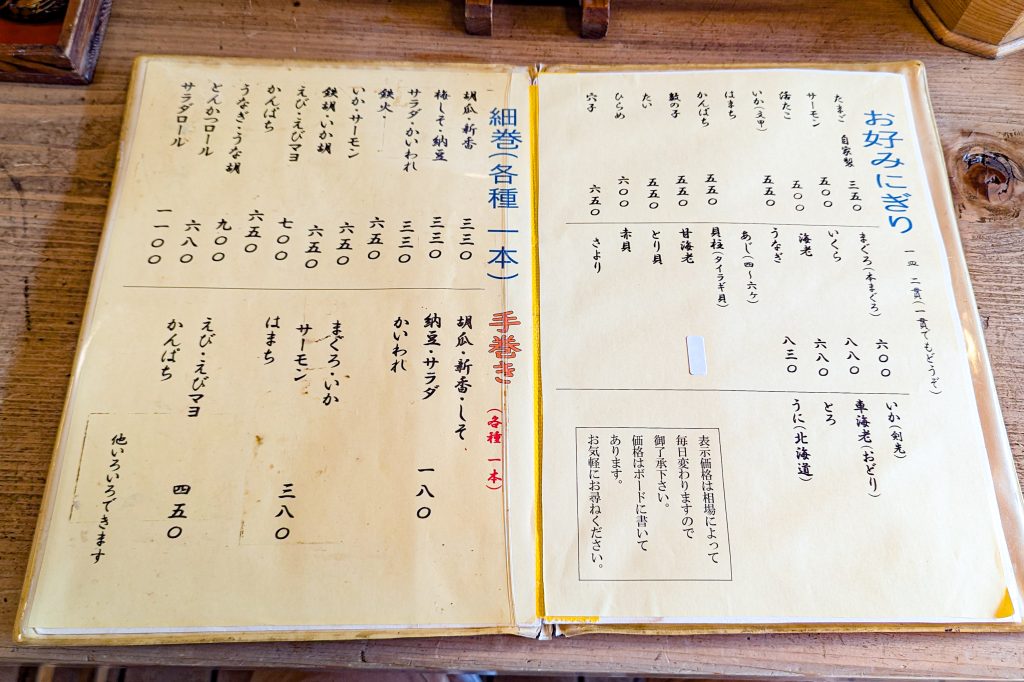 お好みにぎり
一皿 二貫(一貫でもどうぞ)
たまご 自家製 三五〇
サーモン 五〇〇
活たこ 五〇〇
いか(文甲) 五五〇
はまち
かんぱち 五五〇
数の子 五五〇
たい 五五〇
ひらめ 六〇〇
穴子 六五〇
まぐろ(本まぐろ) 六〇〇
いくら 八八〇
海老 六八〇
うなぎ 八三〇
あじ(四〜六ケ)
貝柱(タイラギ貝)
甘海老
とり貝
赤貝
さより
いか(剣先)
車海老(おどり)
とろ
うに(北海道)
表示価格は相場によって
毎日変わりますので
御了承下さい。
価格はボードに書いて
あります。
お気軽にお尋ねください。
細巻(各種 一本)
胡瓜・新香 三三〇
梅しそ・納豆 三三〇
サラダ・かいわれ 三三〇
鉄火・ 六五〇
いか・サーモン 六五〇
鉄胡・いか胡 六五〇
えび・えびマヨ 七〇〇
かんぱち 六五〇
うなぎ・うな胡 九〇〇
とんかつロール 六八〇
サラダロール 一一〇〇
手巻き(各種 一本)
胡瓜・新香・しそ
納豆・サラダ 一八〇
かいわれ
まぐろ・いか
サーモン 三八〇
はまち
えび・えびマヨ
かんぱち 四五〇
他いろいろできます